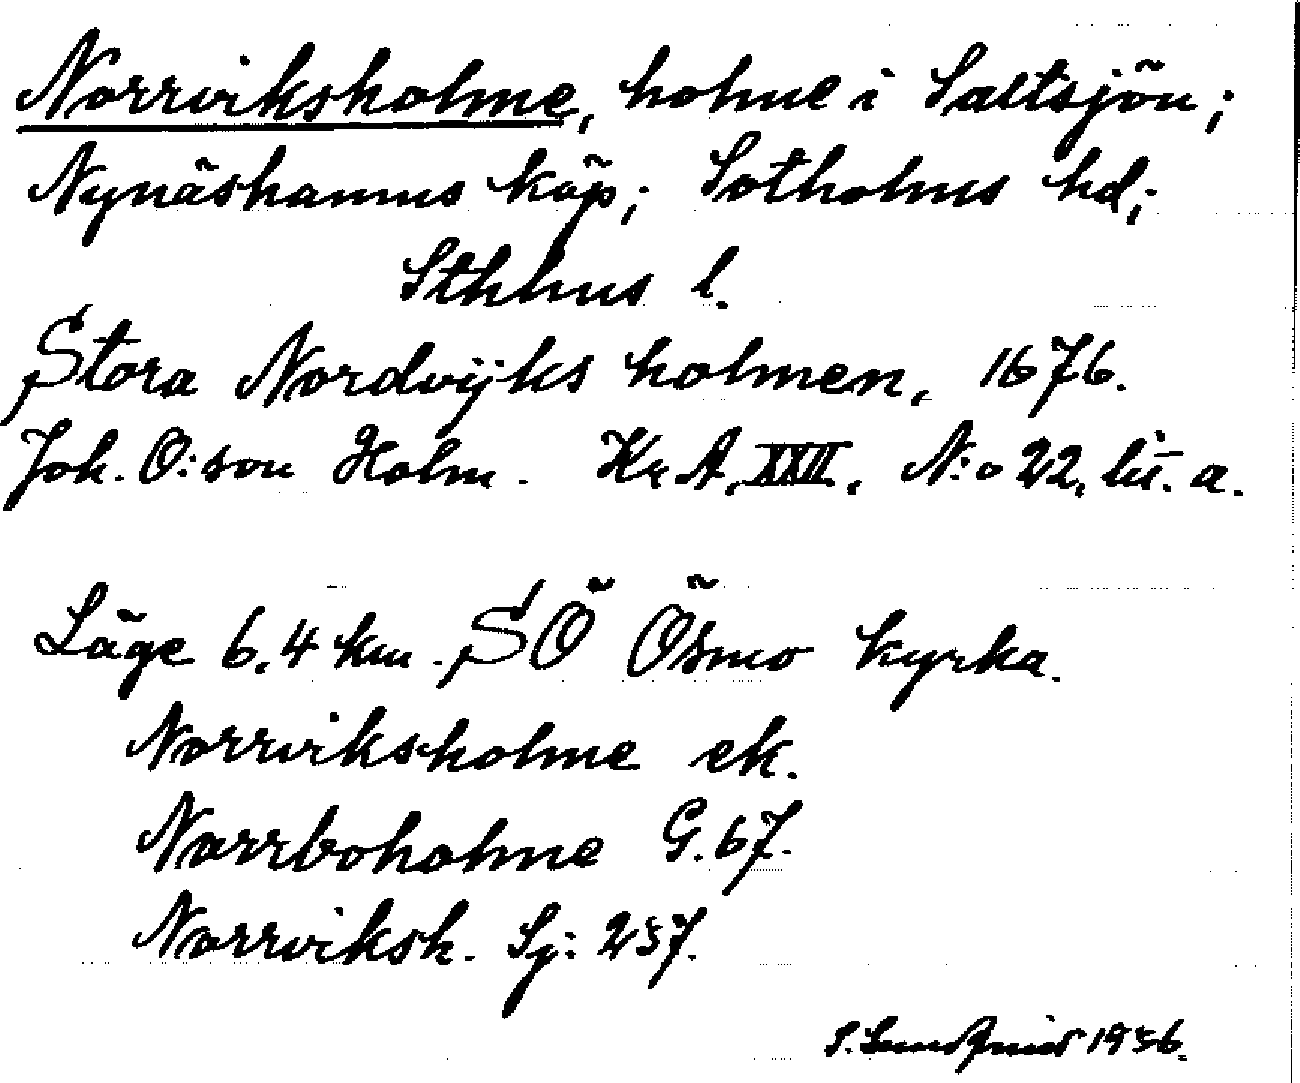 Norrviksholme, holme i Saltsjön;
Nynäshamns köp; Sotholms hd;
Sthlms l.
Stora Nordvijks holmen, 1676.
Joh. O:son Holm. Kr A, XXII, N:o 22, lit. a.
Läge 6,4 km. SÖ Ösmo kyrka.
Norrviksholme ek.
Norrboholme G. 67.
Norrviksh. Sj: 257.
S. Lundqvist 1936.